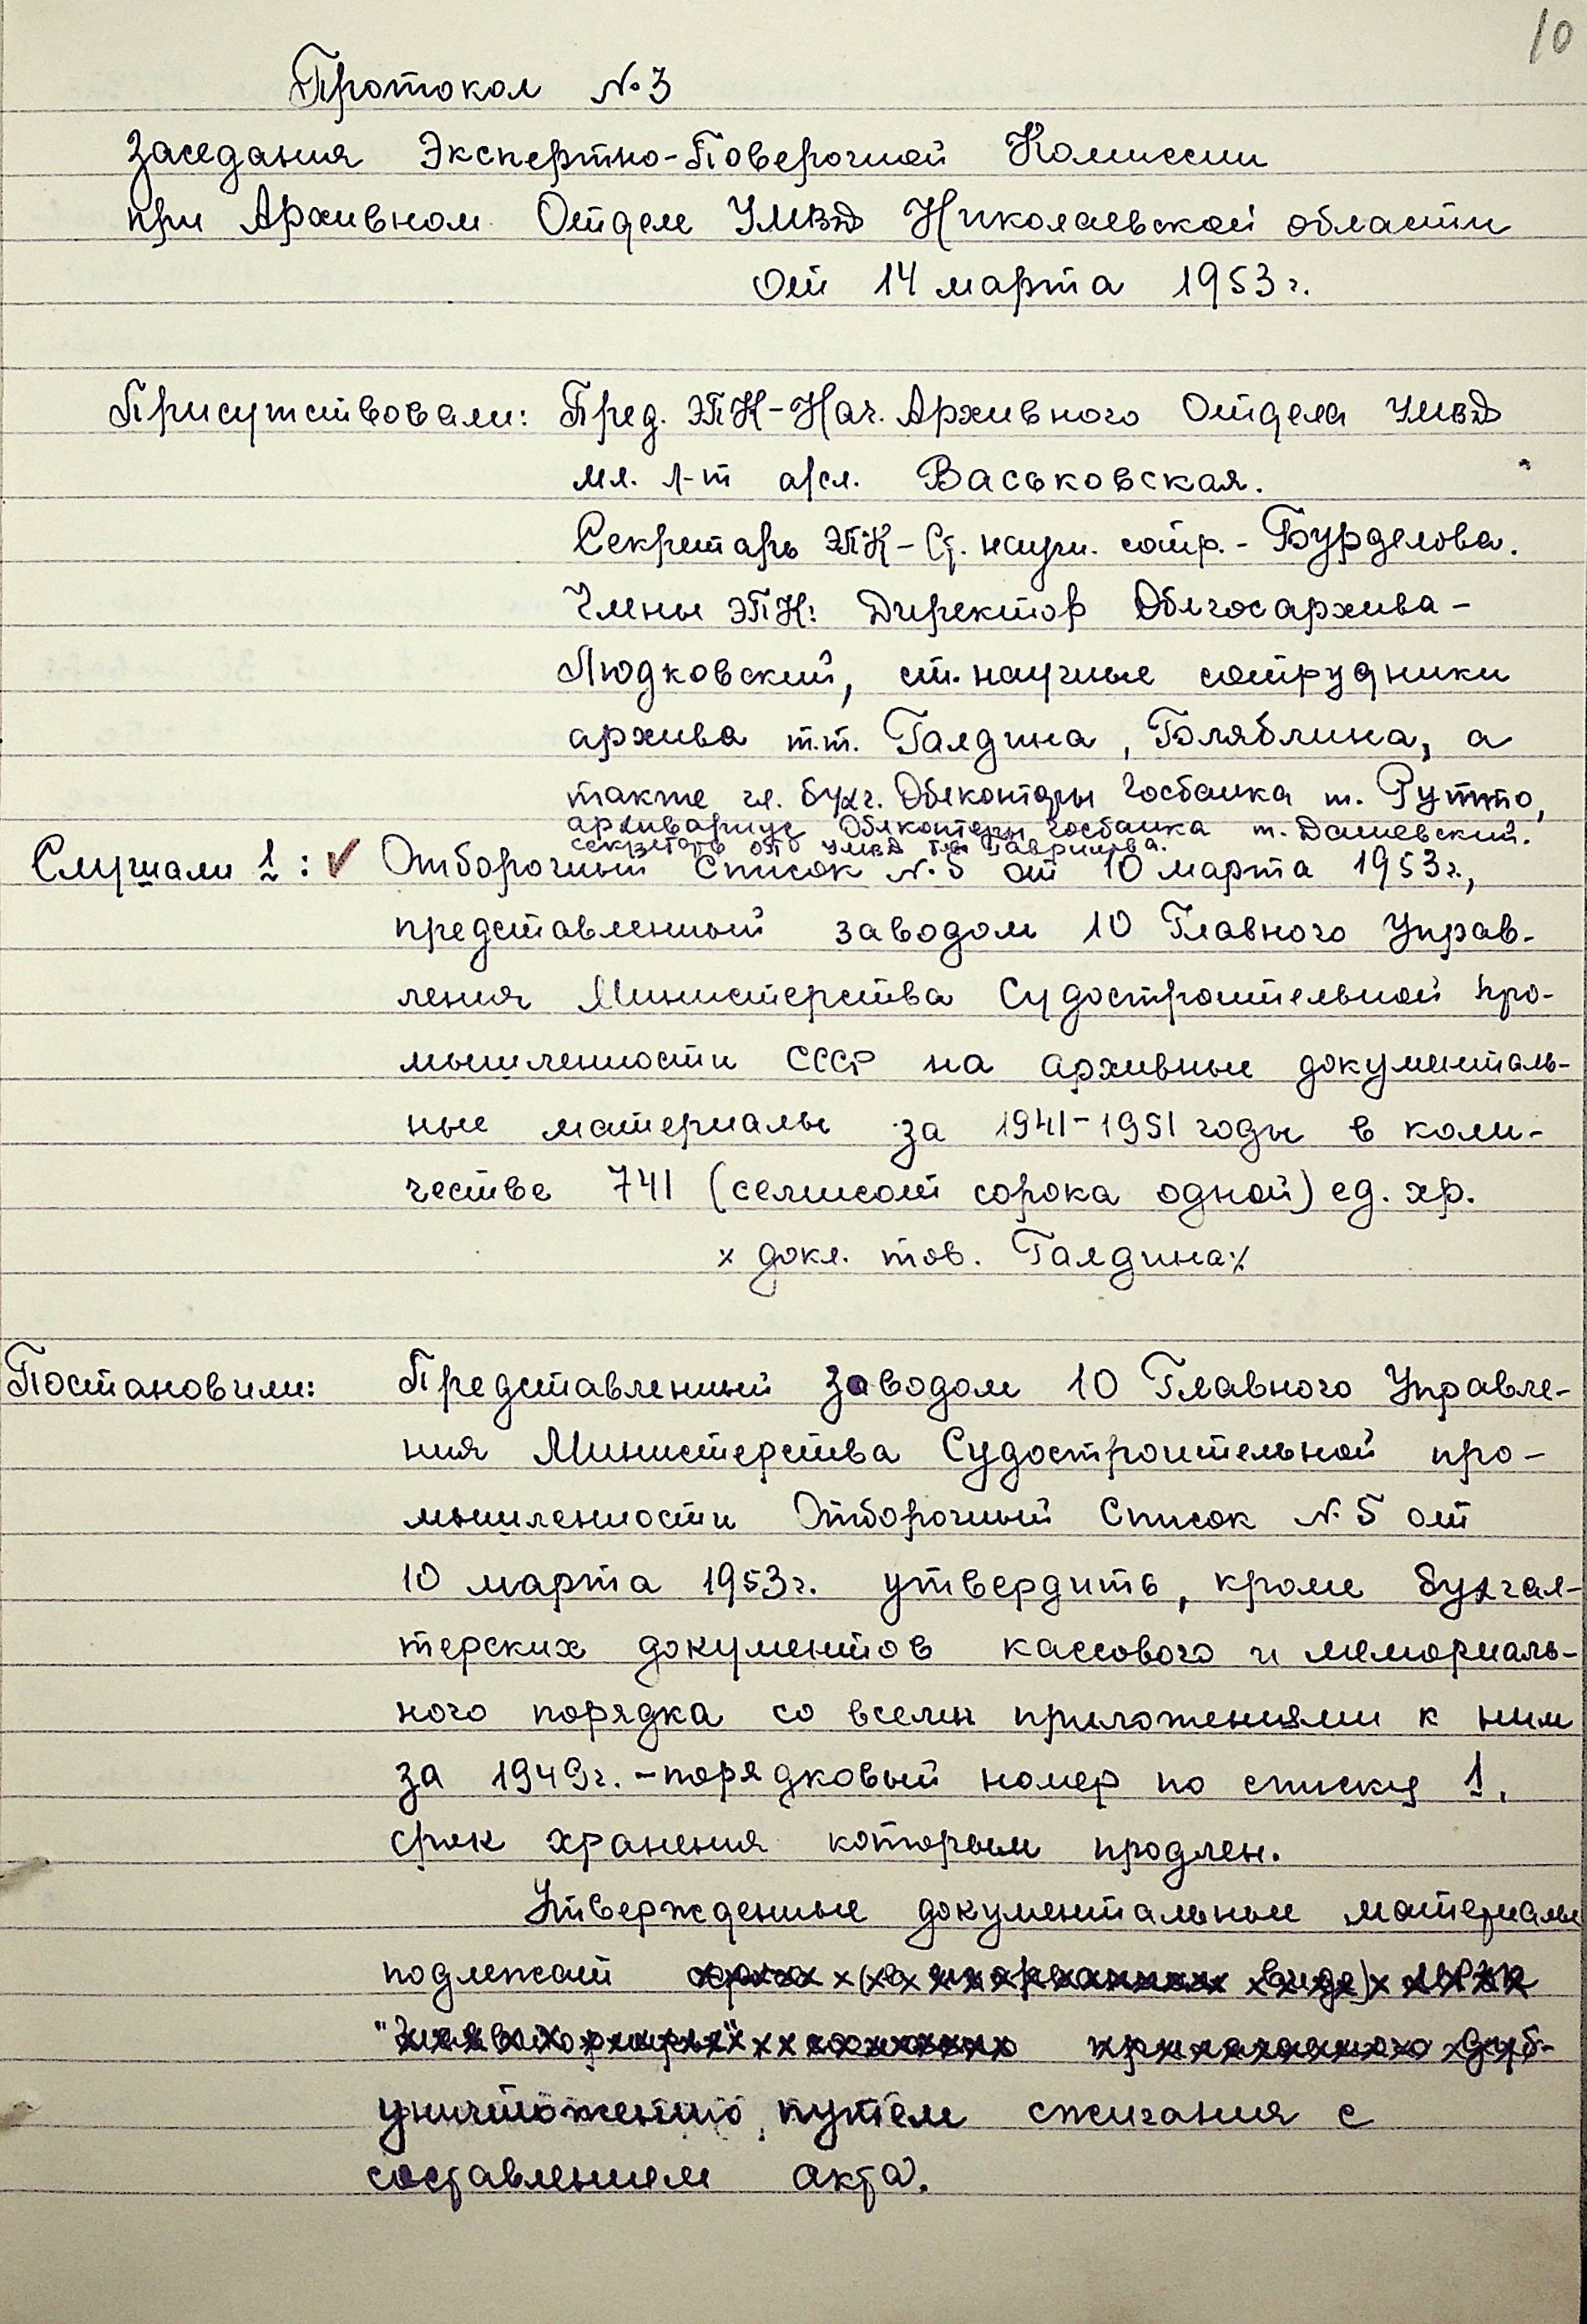 10
Протокол №3
заседания Экспертно-Поверочной Комиссии
при Архивном Отделе УМВД Николаевской области
от 14 марта 1953 г.
Присутствовали: Пред. ЭПК-Нач. Архивного Отдела УМВД
мл. л-т а/сл. Васьковская.
Секретарь ЭПК-Ст. научн. сотр.- Бурделова.
Члены ЭПК: Директор Облгосархива-
Людковский, ст. научные сотрудники
архива т.т. Галдина, Голяблина, а
также гл. бухг. Облконторы Госбанка т. Рутто,
архивариус Облконторы Госбанка т. Дашевский.
секретарь УМВД Гаврилова.
Слушали 1: Отборочный Список №5 от 10 марта 1953 г.,
представленный заводом 10 Главного Управ-
ления Министерства Судостроительной про-
мышленности СССР на архивные документаль-
ные материалы за 1941-1951 годы в коли-
честве 741 (семьсот сорока одной) ед. хр.
х докл. тов. Галдина х
Постановили: Представленный заводом 10 Главного Управле-
ния Министерства Судостроительной про-
мышленности Отборочный Список №5 от
10 марта 1953 г. утвердить, кроме бухгал-
терских документов кассового и мемориаль-
ного порядка со всеми приложениями к ним
за 1949 г. - порядковый номер по списку 1,
срок хранения которым продлен.
Утвержденные документальные материалы
подлежат
уничтожению путем сжигания с
составлением акта.